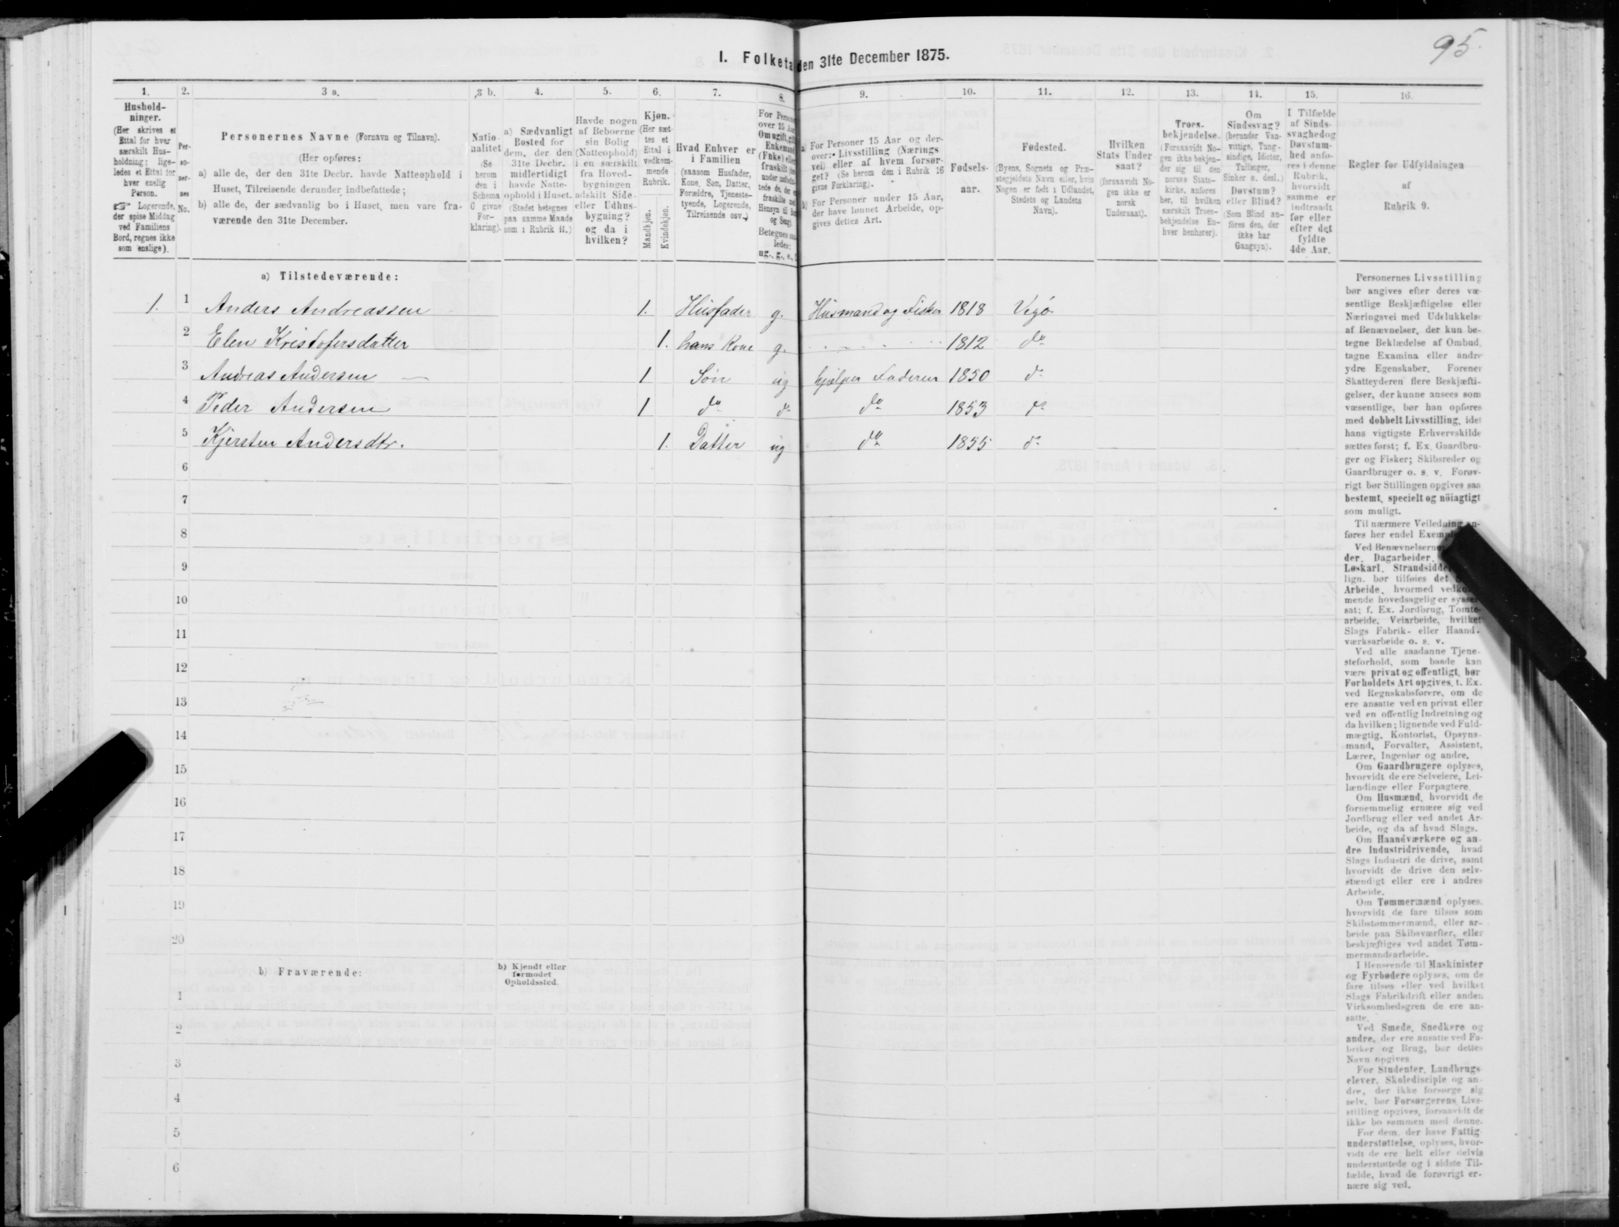 95.
I. Folketa en 31te December 1875.
1. 2. 3 a. 3 b. 4. 5. 6. 7. 8. 9. 10. 11. 12. 13. 14. 15. 16.
Hushold-
ninger.
(Her skrives et
Ettal for hver
særskilt Hus-
holdning; lige-
ledes et Ettal for
hver enslig
Person.
☞ Logerende,
der spise Middag
ved Familiens
Bord, regnes ikke
som enslige).
Per-
so-
ner-
nes
No.
Personernes Navne (Fornavn og Tilnavn).
(Her opføres:
a) alle de, der den 31te Decbr. havde Natteophold i
Huset, Tilreisende derunder indbefattede;
b) alle de, der sædvanlig bo i Huset, men vare fra-
værende den 31te December.
Natio-
nalitet
(Se
herom
den i
Schema
6 givne
For-
klaring).
a) Sædvanligt
Bosted for
dem, der den
31te Decbr.
midlertidigt
havde Natte-
ophold i Huset.
(Stedet betegnes
paa samme Maade
som i Rubrik 11.)
Havde nogen
af Beboerne
sin Bolig
(Natteophold)
i en særskilt
fra Hoved-
bygningen
adskilt Side-
eller Udhus-
bygning?
og da i
hvilken?
Kjøn.
(Her sæt-
tes et
Ettal i
vedkom-
mende
Rubrik.
Mandkjøn.
Kvindekjøn.
Hvad Enhver er
i Familien
(saasom Husfader,
Kone, Søn, Datter,
Forældre, Tjeneste-
tyende, Logerende,
Tilreisende osv.)
For Perso
over 15 Aar
Om ugift, gift
Enkemand
(Enke) elle
fraskilt
ug., g., e.,
a) For Personer 15 Aar og der-
over: Livsstilling (Nærings-
vei) eller af hvem forsør-
get? (Se herom den i Rubrik 16
givne Forklaring).
b) For Personer under 15 Aar,
der have lønnet Arbeide, op-
gives dettes Art.
Fødsels-
aar.
Fødested.
(Byens, Sognets og Præ-
stegjeldets Navn eller, hvis
Nogen er født i Udlandet,
Stedets og Landets
Navn).
Hvilken
Stats Under-
saat?
(forsaavidt No-
gen ikke er
norsk
Undersaat).
Troes-
bekjendelse.
(Forsaavidt No-
gen ikke bekjen-
der sig til den
norske Stats-
kirke, anføres
her, til hvilken
særskilt Troes-
bekjendelse En-
hver henhører).
Om
Sindssvag?
(herunder Van-
vittige, Tung-
sindige, Idioter,
Tullinger,
Sinker o. desl.)
Døvstum?
eller Blind?
(Som Blind an-
føres den, der
ikke har
Gangsyn).
I Tilfælde
af Sinds-
svaghed og
Døvstum-
hed anfø-
res i denne
Rubrik,
hvorvidt
samme er
indtraadt
før eller
efter det
fyldte
4de Aar.
Regler for Udfyldningen
af
Rubrik 9.
a) Tilstedeværende:
1. 1 Anders Andreassen 1. Husfader g. Husmand og Fisker 1818 Vegö
2 Elen Kristofersdatter 1. hans Kone g. 1812 do
3 Andreas Andersen 1 Søn ug hjælper Faderen 1850 do
4 Peder Andersen 1 do do do 1853 do
5 Kjersten Andersdtr. 1. Datter ug do 1855 do
6
7
8
9
10
11
12
13
14
15
16
17
18
19
20
b) Fraværende:
b) Kjendt eller
formodet
Opholdssted.
1
2
3
4
5
6
Personernes Livsstilling
bør angives efter deres væ-
sentlige Beskjæftigelse eller
Næringsvei med Udelukkelse
af Benævnelser, der kun be-
tegne Beklædelse af Ombud,
tagne Examina eller andre
ydre Egenskaber. Forener
Skatteyderen flere Beskjæfti-
gelser, der kunne ansees som
væsentlige, bør han opføres
med dobbelt Livsstilling, idet
hans vigtigste Erhvervskilde
sættes først; f. Ex. Gaardbru-
ger og Fisker; Skibsreder og
Gaardbruger o. s. v. Forøv-
rigt bør Stillingen opgives saa
bestemt, specielt og nöiagtigt
som muligt.
Til nærmere Veiledning an-
føres her endel Exemp
Ved Benævnelsern
der, Dagarbeider,
Løskarl, Strandsidde
lign. bør tilføies det
Arbeide, hvormed vedkom-
mende hovedsagelig er syssel-
sat; f. Ex. Jordbrug, Tomte-
arbeide, Veiarbeide, hvilket
Slags Fabrik- eller Haand-
værksarbeide o. s. v.
Ved alle saadanne Tjene-
steforhold, som baade kan
være privat og offentligt, bør
Forholdets Art opgives, t. Ex.
ved Regnskabsførere, om de
ere ansatte ved en privat eller
ved en offentlig Indretning og
da hvilken; lignende ved Fuld-
mægtig, Kontorist, Opsyns-
mand, Forvalter, Assistent,
Lærer, Ingeniør og andre.
Om Gaardbrugere oplyses,
hvorvidt de ere Selveiere, Lei-
lændinge eller Forpagtere.
Om Husmænd, hvorvidt de
fornemmelig ernære sig ved
Jordbrug eller ved andet Ar-
beide, og da af hvad Slags.
Om Haandværkere og an-
dre Industridrivende, hvad
Slags Industri de drive, samt
hvorvidt de drive den selv-
stændigt eller ere i andres
Arbeide.
Om Tømmermænd oplyses,
hvorvidt de fare tilsøs som
Skibstømmermænd, eller ar-
beide paa Skibsværfter, eller
beskjæftiges ved andet Tøm-
mermandsarbeide.
I Henseende til Maskinister
og Fyrbødere oplyses, om de
fare tilsøs eller ved hvilket
Slags Fabrikdrift eller anden
Virksomhedsgren de ere an-
satte.
Ved Smede, Snedkere og
andre, der ere ansatte ved Fa-
briker og Brug, bør dettes
Navn opgives.
For Studenter, Landbrugs-
elever, Skoledisciple og an-
dre, der ikke forsørge sig
selv, bør Forsørgerens Livs-
stilling opgives, forsaavidt de
ikke bo sammen med denne.
For dem, der have Fattig-
understøttelse, oplyses, hvor-
vidt de ere helt eller delvis
understøttede og i sidste Til-
fælde, hvad de forøvrigt er-
nære sig ved.